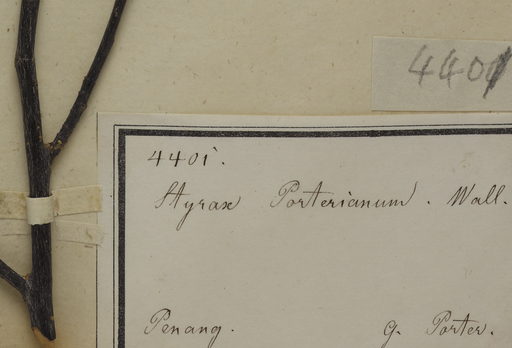 4401
4401.
Styrax Porterianum. Wall.
Penang. G. Porter.